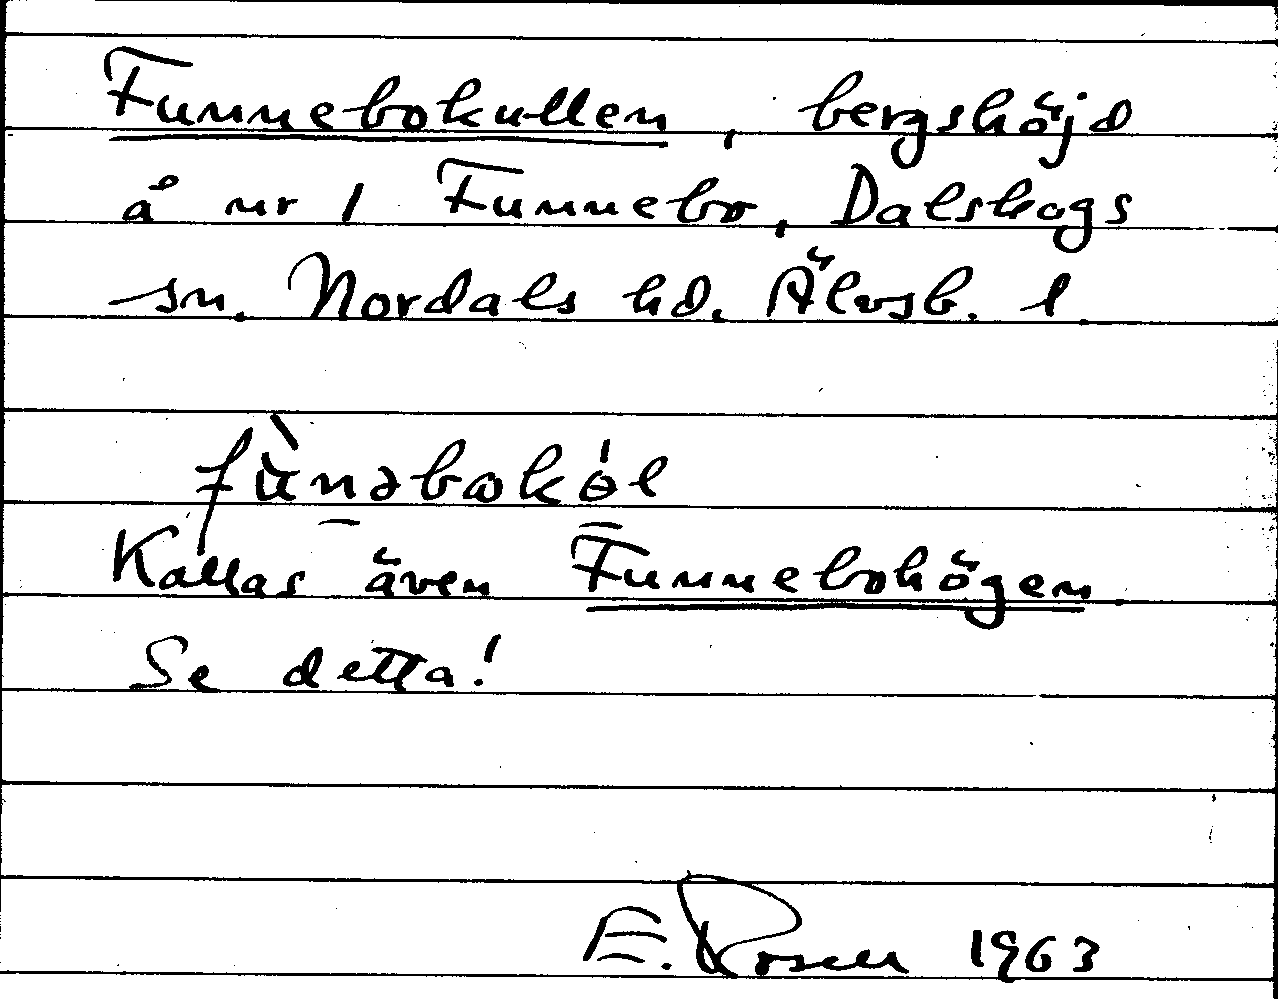 Funnebokullen, bergshöjd
å nr 1 Funnebo, Dalskogs
sn. Nordals hd. Älvsb. l.
fùnəbokɵ́l
Kallas även Funnebohögen.
Se detta!
E. Rosell 1963